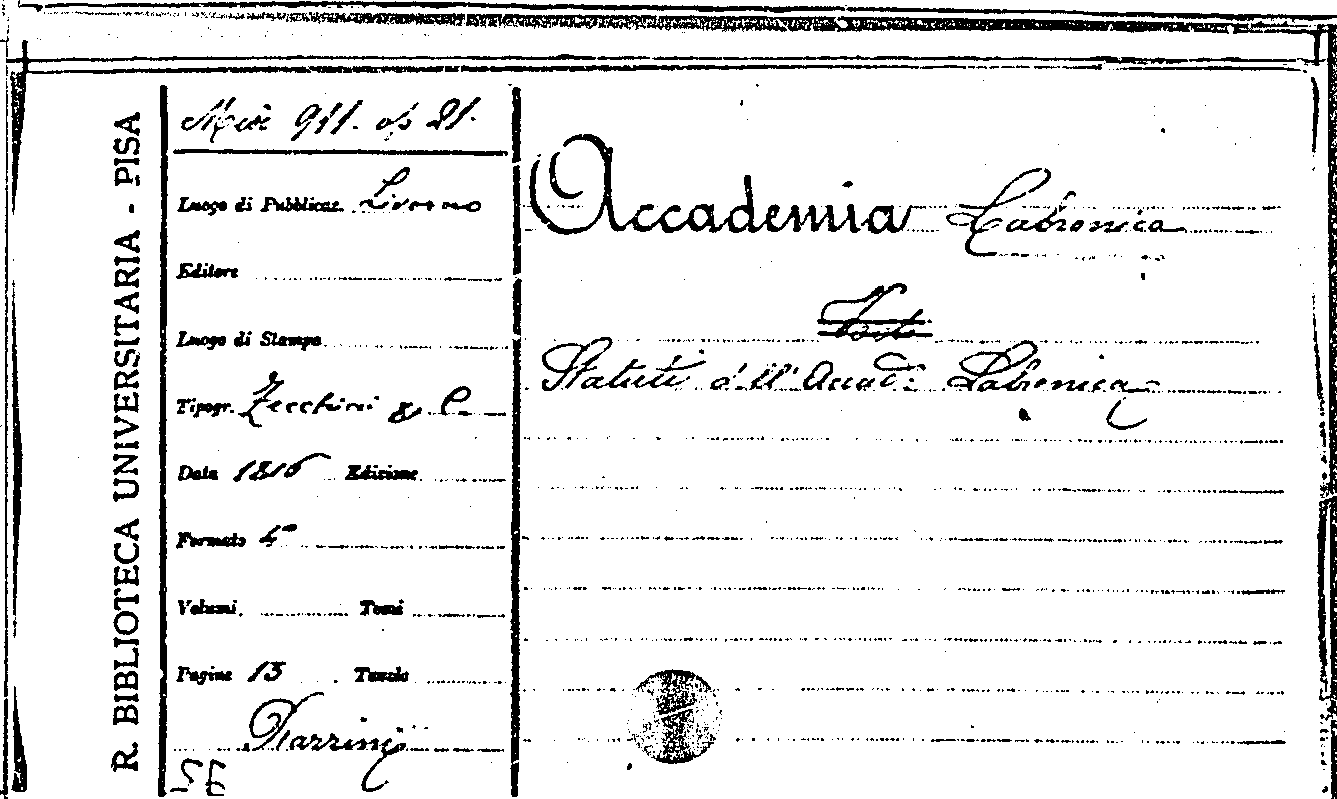 R. BIBLIOTECA UNIVERSITARIA - PISA
Misc 911. op 21.
Luogo di Pubblicaz. Livorno
Editore
Luogo di Stampa
Tipogr. Zecchini & C.
Data 1816 Edizione
Formato 4°
Volumi Tomi
Pagine 13 Tavole
Accademia Labronica
Statuti d'll' Accad: Labronica